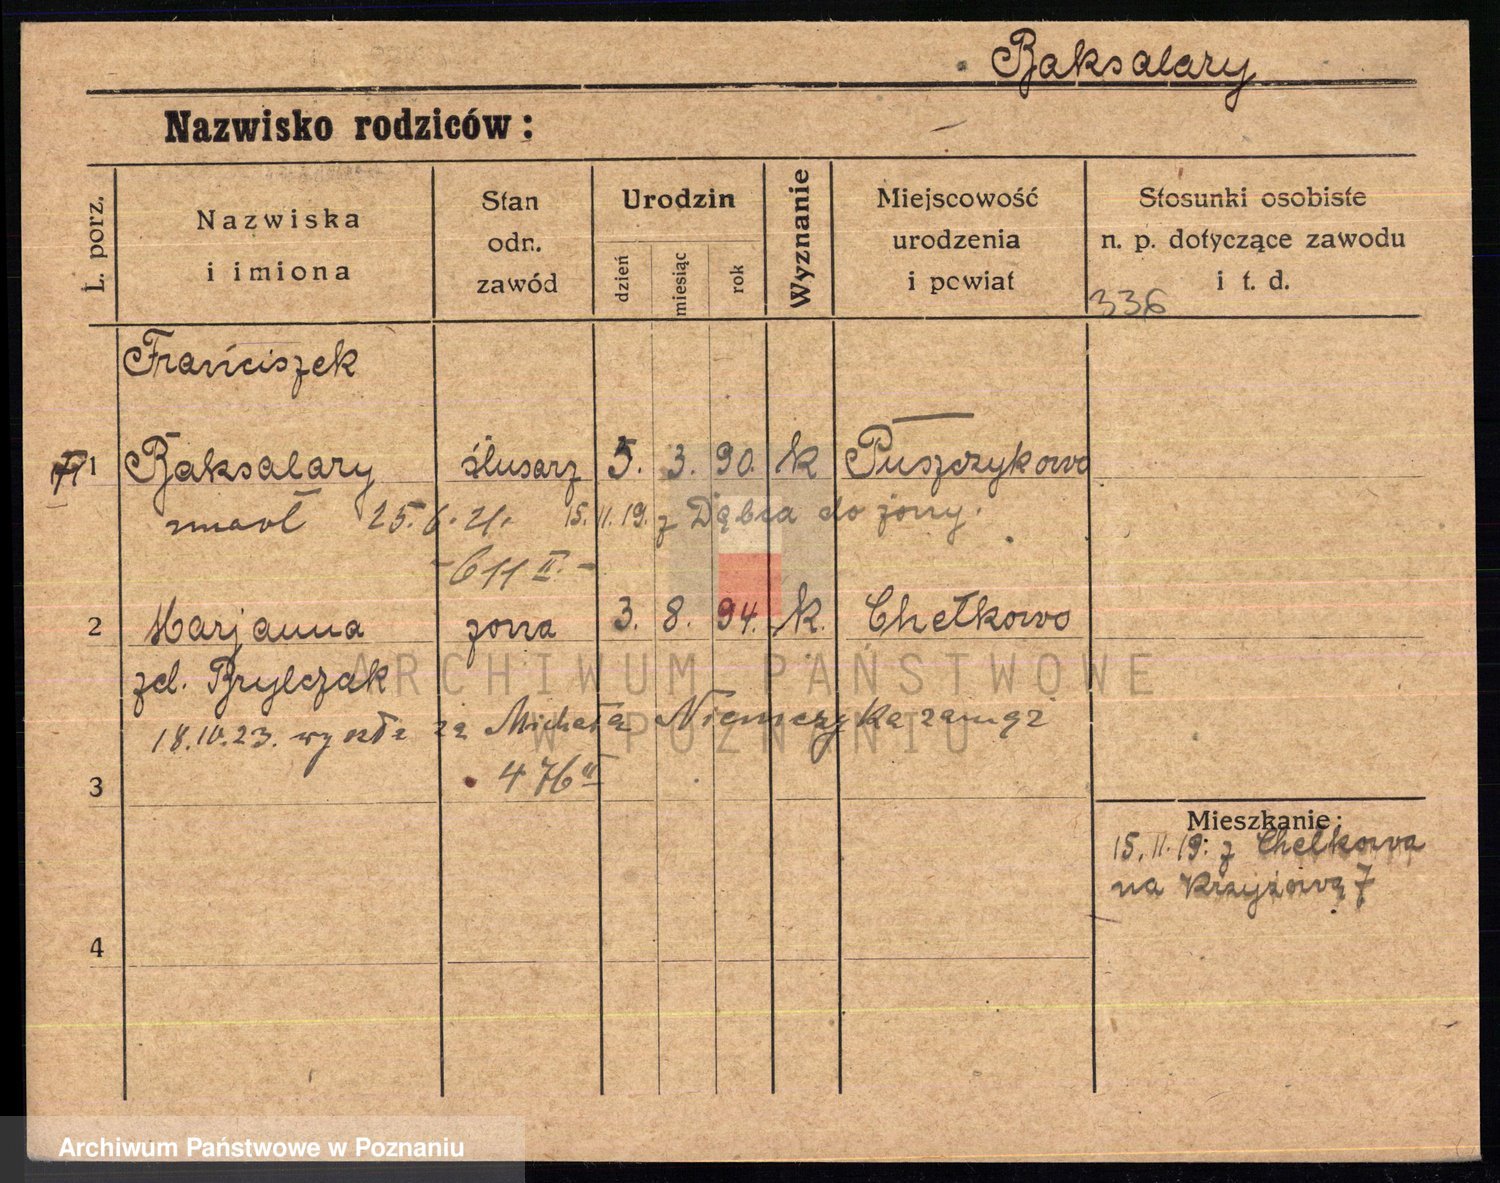 Baksalary
Nazwisko rodziców :
L. porz.
Nazwiska
i imiona
Stan
odn.
zawód
Urodzin
dzień
miesiąc
rok
Wyznanie
Miejscowość
urodzenia
i powiat
Stosunki osobiste
n. p. dotyczące zawodu
i t. d.
336
Franciszek
1 Baksalary ślusarz 5. 3. 90. k Puszczykowo
zmarł 25. 6. 21. 15. 11. 19. z Dąbca do żony.
- 611 II. -
2 Marjanna żona 3. 8. 94. k. Chełkowo
zd. Brylczak
18.10.23. wyszła za Michała Niemczyka zamąż
476 II
3
Mieszkanie:
15. 11. 19. z Chełkowa
na Krzyżową 7
4
ARCHIWUM PAŃSTWOWE
W POZNANIU
Archiwum Państwowe w Poznaniu